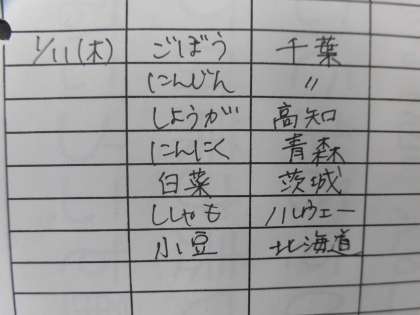 1/11(木) ごぼう 千葉
にんじん 〃
しょうが 高知
にんにく 青森
白菜 茨城
ししゃも ノルウェー
小豆 北海道